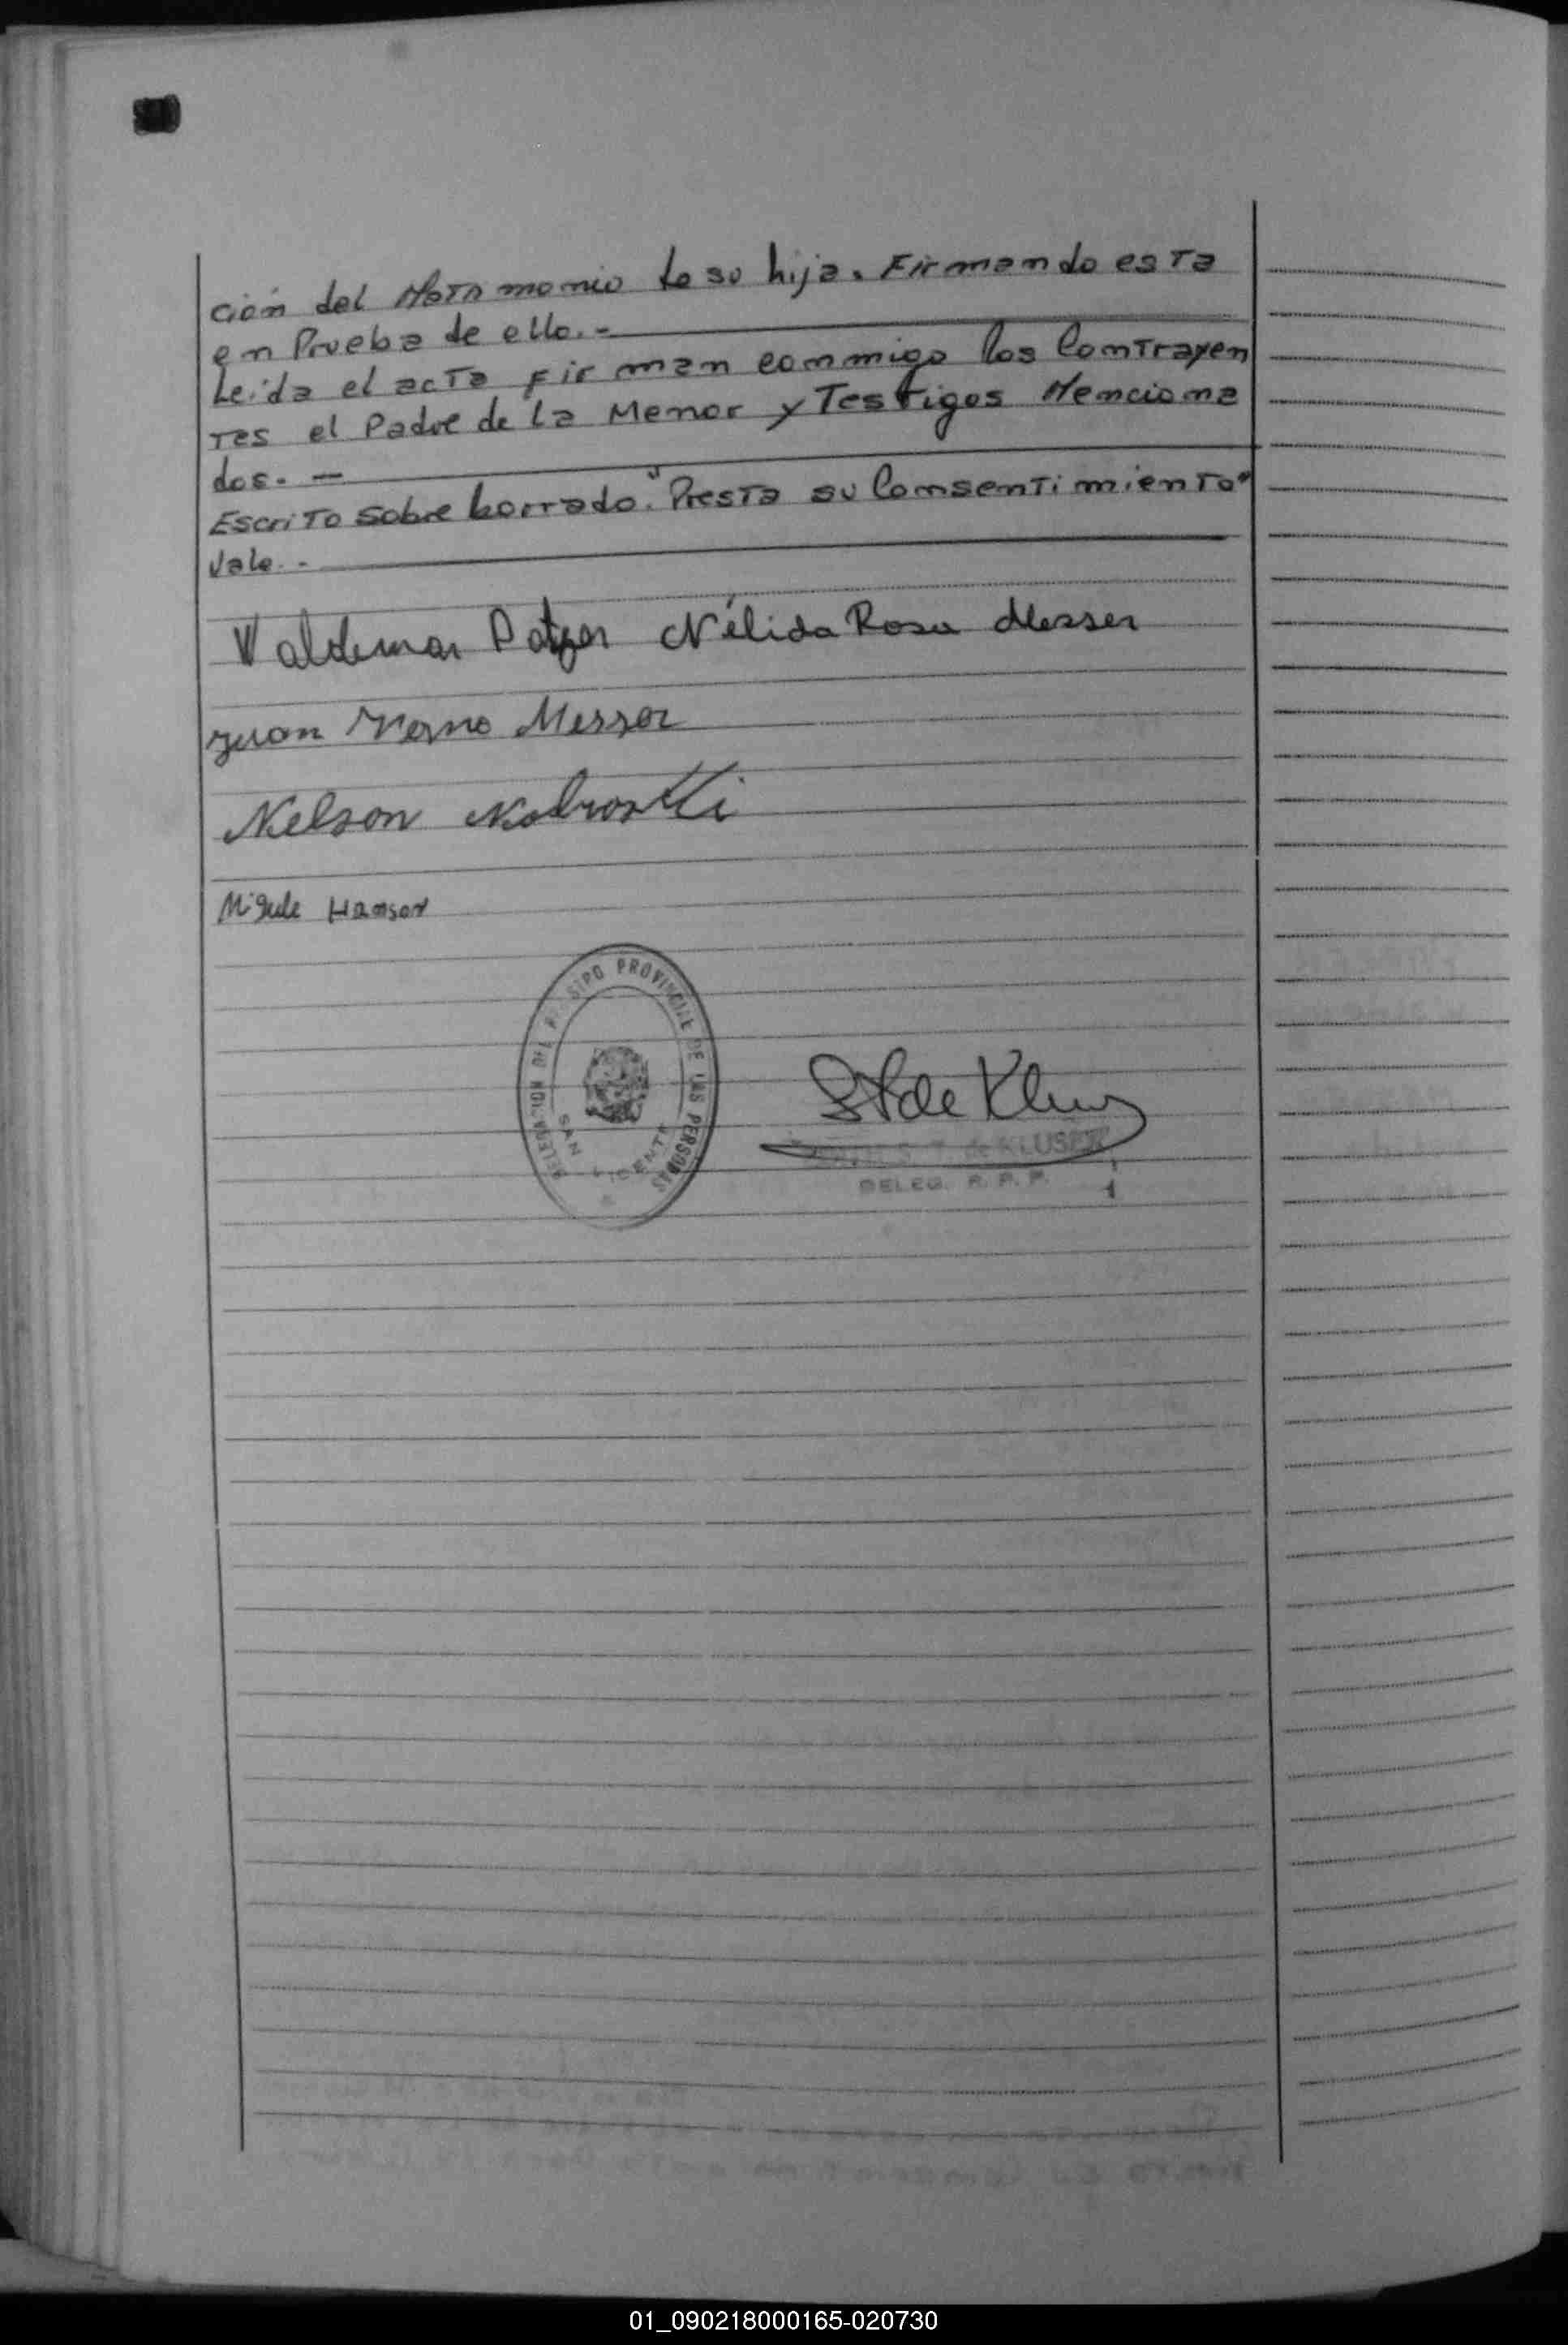 ción del Matrimonio de su hija. Firmando esta
en Prueba de ello.-
Leída el acta Firman conmigo los Contrayen
tes el Padre de La Menor y Testigos Menciona
dos. -
Escrito sobre borrado. "Presta su Consentimiento"
Vale. -
Valdemar Nélida Rosa Messer
Juan Messer
Nelson
Hanser
DELEGACION DEL REGISTRO PROVINCIAL DE LAS PERSONAS
SAN VICENTE
S. T. de KLUSER
DELEG. R. P. P.
01_090218000165-020730